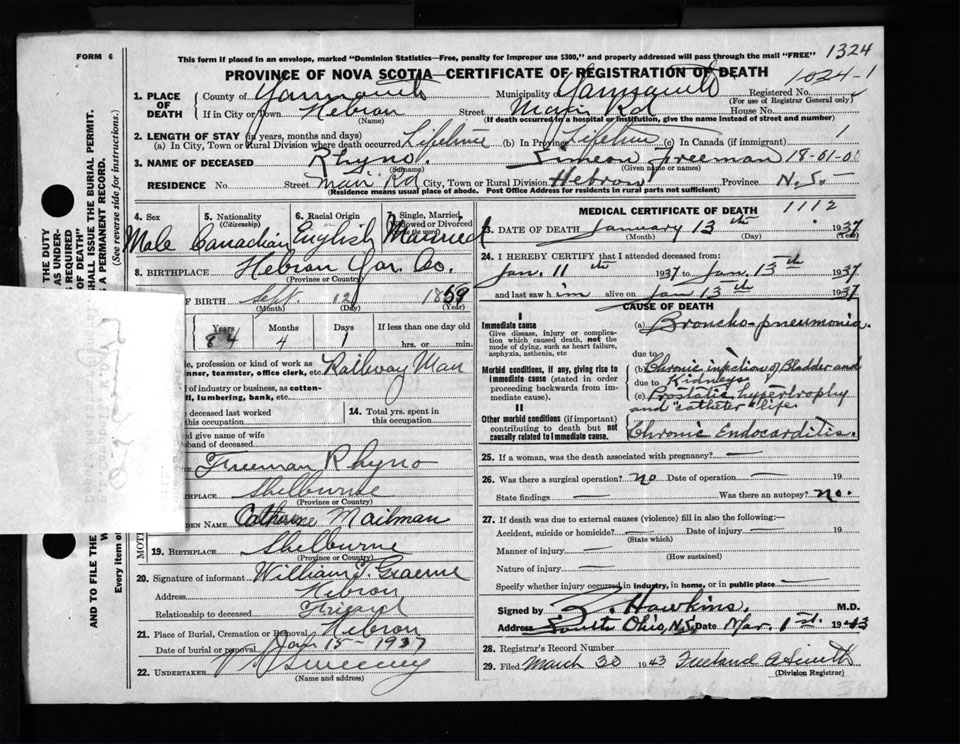 FORM 6
This form if placed in an envelope, marked "Dominion Statistics—Free, penalty for improper use $300," and properly addressed will pass through the mail "FREE" 1324
PROVINCE OF NOVA SCOTIA—CERTIFICATE OF REGISTRATION OF DEATH 1024-1
1. PLACE OF DEATH County of Yarmouth Municipality of Yarmouth Registered No.
(For use of Registrar General only)
If in City or Town Hebron Street Main Rd House No.
(Name) (If death occurred in a hospital or institution, give the name instead of street and number)
2. LENGTH OF STAY (in years, months and days)
(a) In City, Town or Rural Division where death occurred Lifetime (b) In Province Lifetime (c) In Canada (if immigrant) 1
3. NAME OF DECEASED Rhyno. Simeon Freeman 18-01-0
(Surname) (Given name or names)
RESIDENCE No. Street Main Rd City, Town or Rural Division Hebron Province N.S.
(Residence means usual place of abode. Post Office Address for residents in rural parts not sufficient)
4. Sex 5. Nationality (Citizenship) 6. Racial Origin 7. Single, Married, Widowed or Divorced
Male Canadian English Married
8. BIRTHPLACE Hebron Yar. Co.
(Province or Country)
OF BIRTH Sept. 12 1859
(Month) (Day) (Year)
Years Months Days If less than one day old
84 4 1 hrs. or min.
profession or kind of work as
nner, teamster, office clerk, etc. Railway Man
d of industry or business, as cotton-
ll, lumbering, bank, etc.
deceased last worked
this occupation
14. Total yrs. spent in
this occupation
d give name of wife
sband of deceased
Freeman Rhyno
THPLACE Shelburne
(Province or Country)
DEN NAME Catherine Mailman
MOTH
19. BIRTHPLACE Shelburne
(Province or Country)
20. Signature of informant William
Address Hebron
Relationship to deceased Friend
21. Place of Burial, Cremation or Removal Hebron
Date of burial or removal Jan 15 - 1937
22. UNDERTAKER Sweeney
(Name and address)
MEDICAL CERTIFICATE OF DEATH 1112
23. DATE OF DEATH January 13th 1937
(Month) (Day) (Year)
24. I HEREBY CERTIFY that I attended deceased from:
Jan. 11th 1937 to Jan. 13th 1937
and last saw him alive on Jan 13th 1937
CAUSE OF DEATH
I
Immediate cause
Give disease, injury or complication which caused death, not the mode of dying, such as heart failure, asphyxia, asthenia, etc
(a) Broncho-pneumonia.
due to
Morbid conditions, if any, giving rise to immediate cause (stated in order proceeding backwards from immediate cause).
(b) Chronic infection of Bladder and
due to Kidneys
(c) Prostatic hypertrophy
and "catheter" life
II
Other morbid conditions (if important) contributing to death but not causally related to immediate cause.
Chronic Endocarditis.
25. If a woman, was the death associated with pregnancy?
26. Was there a surgical operation? no Date of operation 19
State findings Was there an autopsy? no.
27. If death was due to external causes (violence) fill in also the following:—
Accident, suicide or homicide? Date of injury 19
(State which)
Manner of injury
(How sustained)
Nature of injury
Specify whether injury occurred in industry, in home, or in public place
Signed by Hawkins. M.D.
Address South Ohio, N.S. Date Mar. 1st. 1943
28. Registrar's Record Number
29. Filed March 30 1943 Freeland A Smith
(Division Registrar)
THE DUTY
AS UNDER-
S REQUIRED
OF DEATH"
SHALL ISSUE THE BURIAL PERMIT.
A PERMANENT RECORD.
(See reverse side for instructions.)
AND TO FILE THE
Every item of